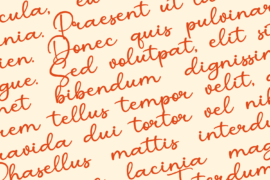 cula,
nia. Praesent ut
ien. Donec quis pulvinar
gue. Sed volutpat, elit si
met bibendum dignissim
uem tellus tempor velit,
avida dui tortor vel ni
Phasellus mattis interdu
lacinia mag
Interdum